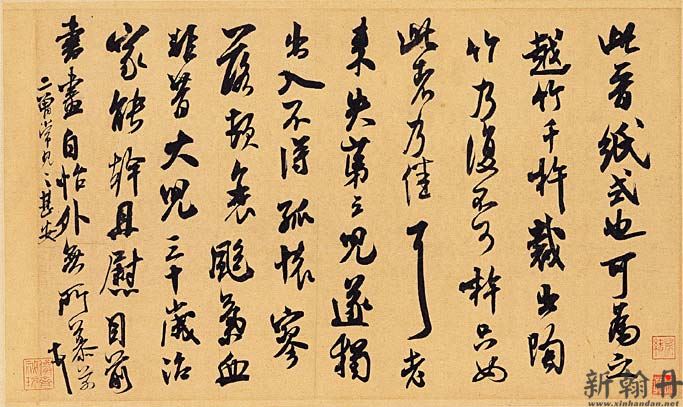 此晉紙式也可為之
越竹千杵裁出陶
竹乃復不可杵只如
此者乃佳耳老
來失第三兒遂獨
出入不得孤懷寥
落頓衰颯氣血
非昔大兒三十歲治
家能幹且慰目前
書畫自怡外無所慕芾
二曾常見之甚安
新翰丹
www.xinhandan.net